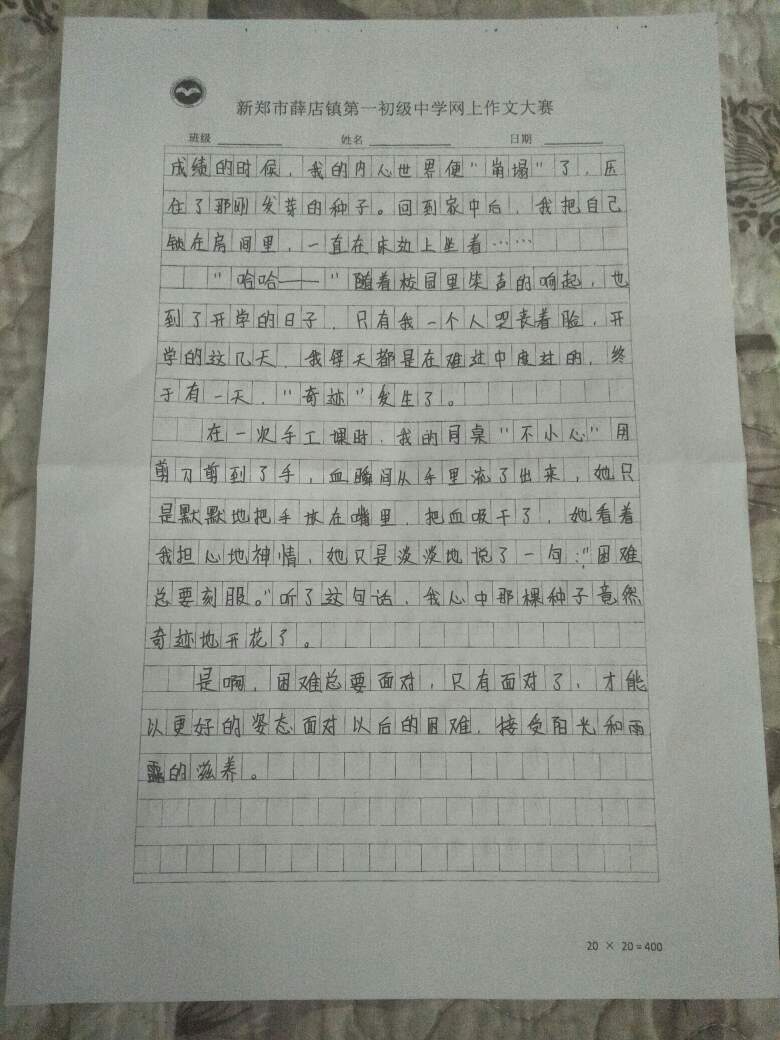 新郑市薛店镇第一初级中学网上作文大赛
班级 姓名 日期
成绩的时候，我的内心世界便“崩塌”了，压
住了那刚发芽的种子。回到家中后，我把自己
锁在房间里，一直在床边上坐着……
“哈哈——”随着校园里笑声的响起，也
到了开学的日子，只有我一个人哭丧着脸，开
学的这几天，我每天都是在难过中度过的，终
于有一天，“奇迹”发生了。
在一次手工课时，我的同桌“不小心”用
剪刀剪到了手，血瞬间从手里流了出来，她只
是默默地把手放在嘴里，把血吸干了，她看着
我担心地神情，她只是淡淡地说了一句：“困难
总要刻服。”听了这句话，我心中那棵种子竟然
奇迹地开花了。
是啊，困难总要面对，只有面对了，才能
以更好的姿态面对以后的困难，接受阳光和雨
露的滋养。
20 × 20＝400